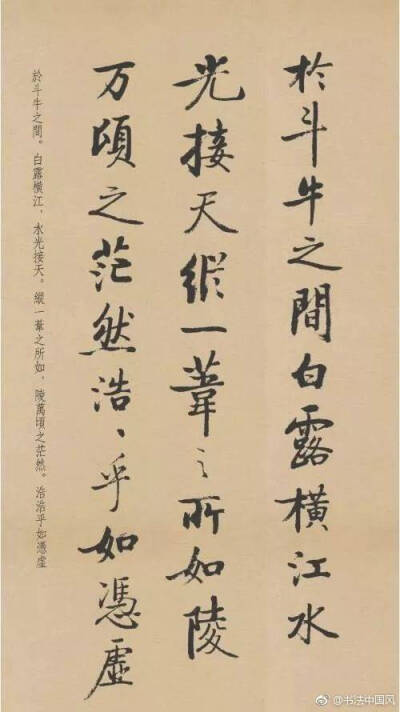 於斗牛之間白露横江水
光接天縱一葦之所如陵
万頃之茫然浩〻乎如馮虛
於斗牛之間。白露橫江，水光接天。縱一葦之所如，陵萬頃之茫然。浩浩乎如馮虛
@书法中国风